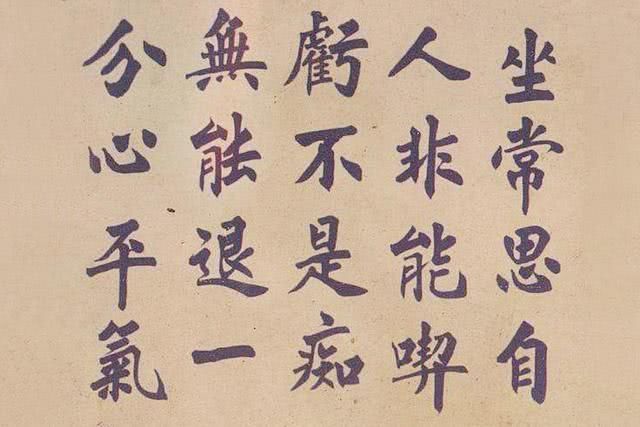 坐常思自
人非能喫
虧不是痴
無能退一
分心平氣